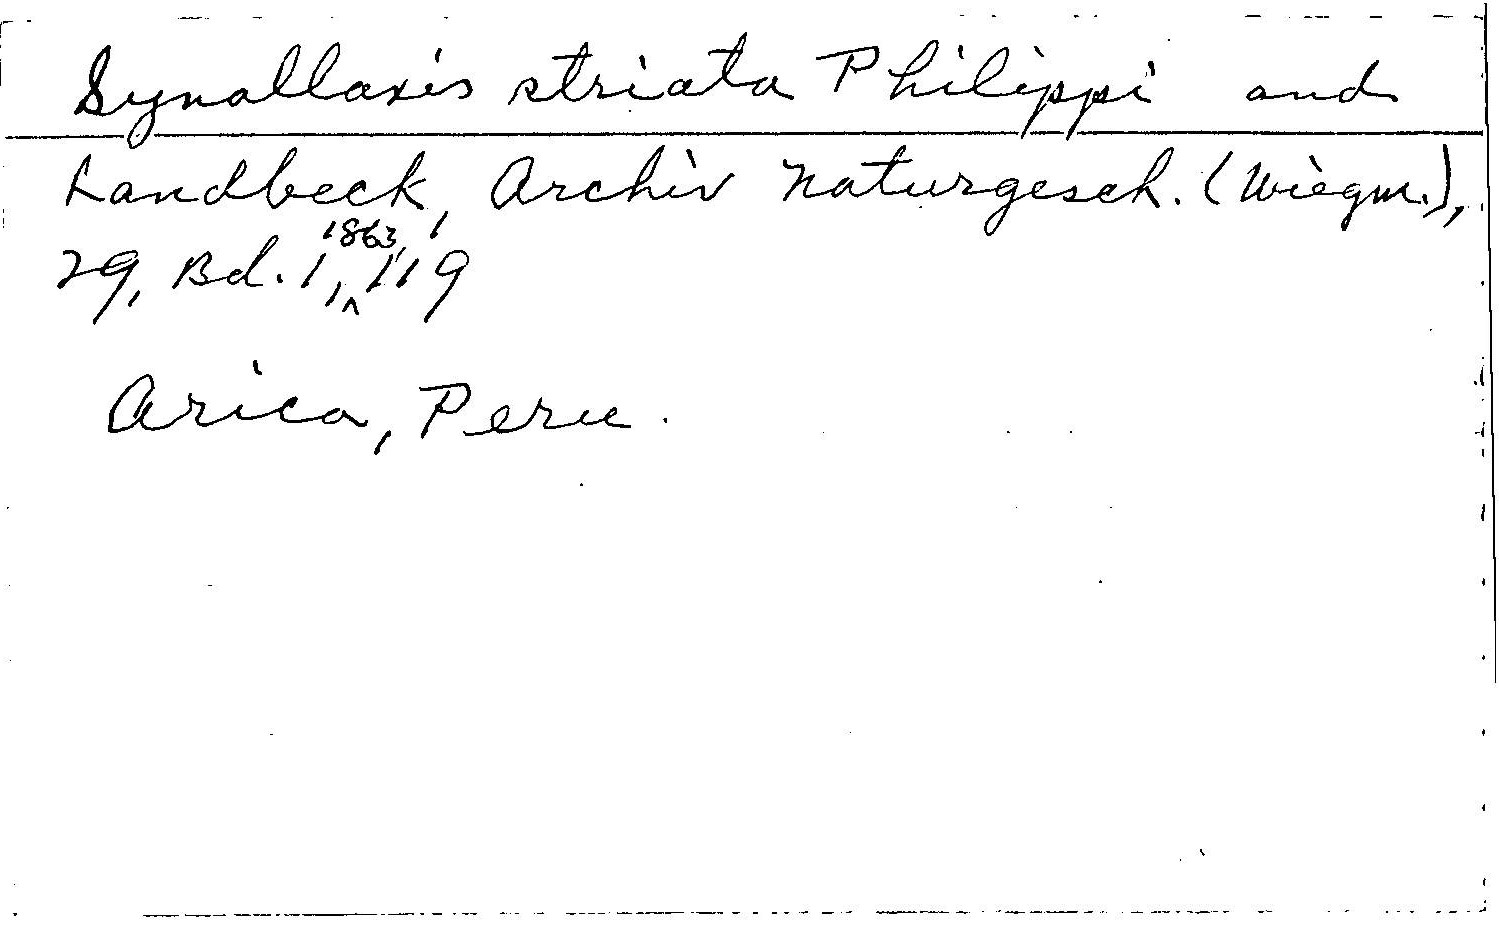 Synallaxis striata Philippi and
Landbeck, Archiv Naturgesch. (Wiegm.),
29, Bd. 1, 1863, 119
Arica, Peru.